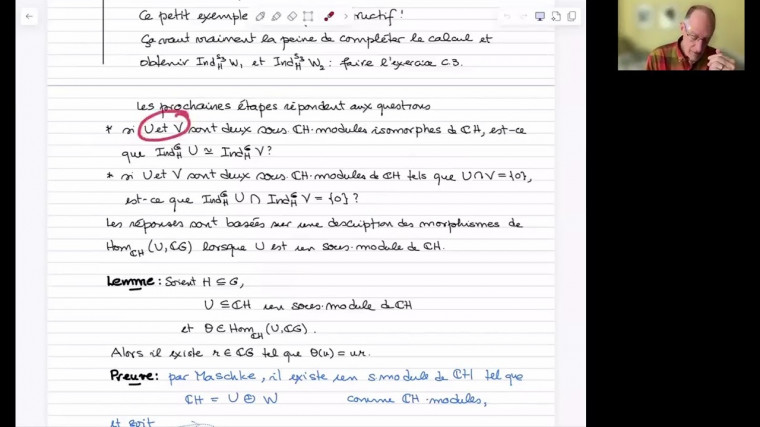 Ce petit exemple
ructif!
Ça vaut vraiment la peine de compléter le calcul et
obtenir Ind_H^{S_3} W_1 et Ind_H^{S_3} W_2 : faire l'exercice C.3.
Les prochaines étapes répondent aux questions
* si U et V sont deux sous-ℂH-modules isomorphes de ℂH, est-ce
que Ind_H^G U ≃ Ind_H^G V ?
* si U et V sont deux sous-ℂH-modules de ℂH tels que U∩V = {0},
est-ce que Ind_H^G U ∩ Ind_H^G V = {0} ?
Les réponses sont basées sur une description des morphismes de
Hom_{ℂH}(U,ℂG) lorsque U est un sous-module de ℂH.
Lemme : Soient H ⊆ G,
U ⊆ ℂH un sous-module de ℂH
et θ ∈ Hom_{ℂH}(U,ℂG).
Alors il existe r ∈ ℂG tel que θ(u) = ur.
Preuve : par Maschke, il existe un s-module de ℂH tel que
ℂH = U ⊕ W comme ℂH-modules,
et soit